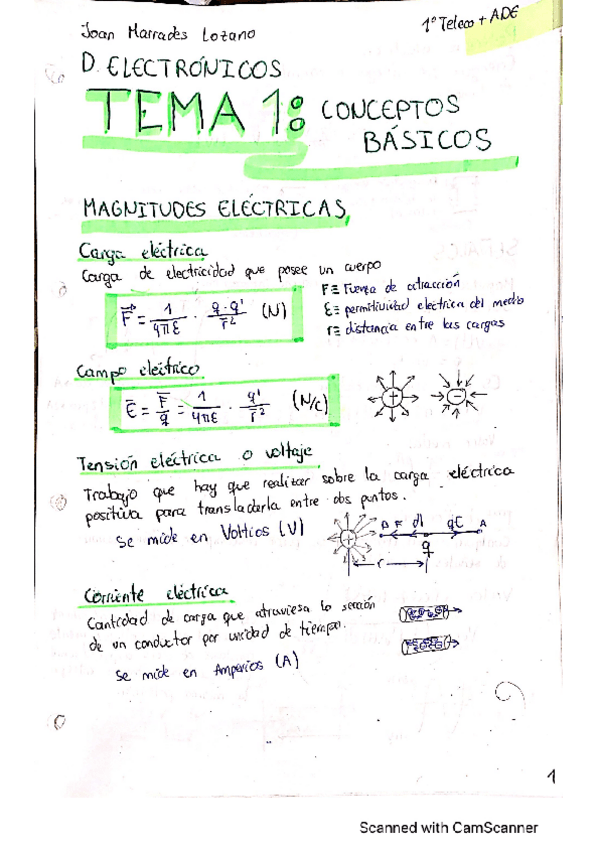 Joan Marrades Lozano
1º Teleco + ADE
D. ELECTRÓNICOS
TEMA 1: CONCEPTOS
BÁSICOS
MAGNITUDES ELÉCTRICAS
Carga eléctrica
Carga de electricidad que posee un cuerpo
F = 1/4πε · q·q'/r² (N)
F ≡ Fuerza de atracción
ε ≡ permitividad electrica del medio
r ≡ distancia entre las cargas
Campo eléctrico
E = F/q = 1/4πε · q'/r² (N/C)
Tensión eléctrica o voltaje
Trabajo que hay que realizar sobre la carga eléctrica
positiva para transladarla entre dos puntos.
Se mide en Voltios (V)
B F dl qE A
q
r
Corriente eléctrica
Cantidad de carga que atraviesa la sección
de un conductor por unidad de tiempo.
Se mide en Amperios (A)
1
Scanned with CamScanner